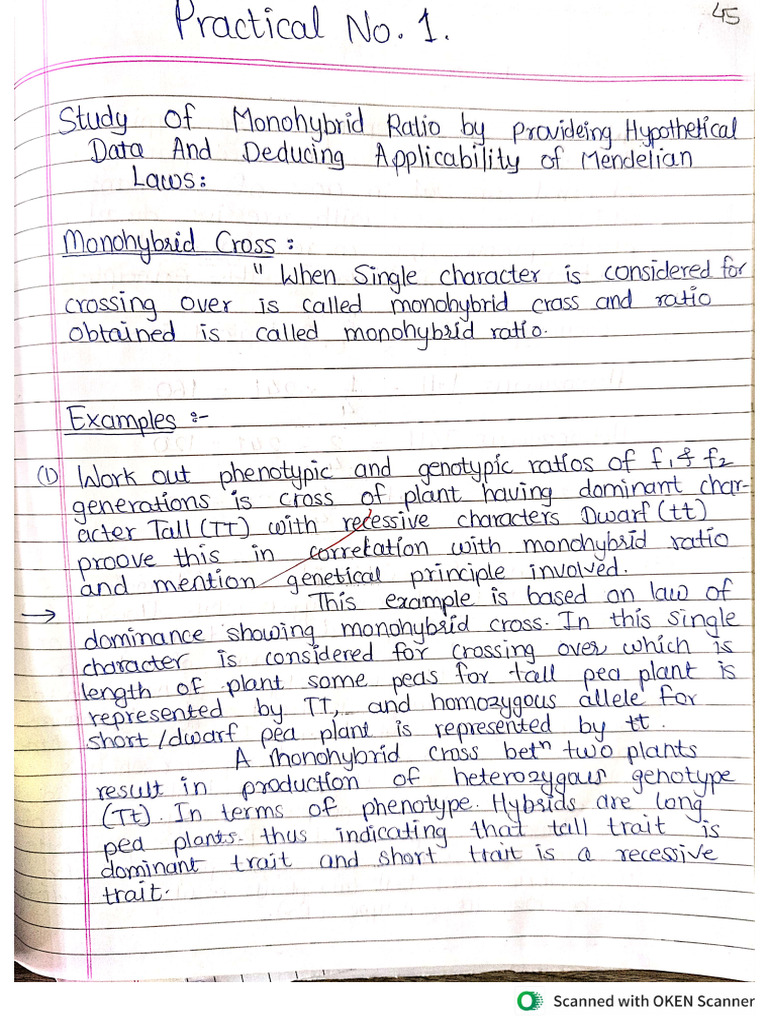 Practical No. 1.
45
Study of Monohybrid Ratio by Provideing Hypothetical
Data And Deducing Applicability of Mendelian
Laws:
Monohybrid Cross :
" When Single character is considered for
crossing over is called monohybrid crass and ratio
obtained is called monohybrid ratio.
Examples :-
(1) Work out phenotypic and genotypic ratios of f1 & f2
generations is cross of plant having dominant char-
acter Tall (TT) with recessive characters Dwarf (tt)
proove this in correlation with monohybrid ratio
and mention genetical principle involved.
→ This example is based on law of
dominance showing monohybrid cross. In this single
character is considered for crossing over which is
length of plant some peas for tall pea plant is
represented by TT, and homozygous allele for
short /dwarf pea plant is represented by tt.
A monohybrid cross betn two plants
result in production of heterozygous genotype
(Tt). In terms of phenotype. Hybrids are long
pea plants. thus indicating that tall trait is
dominant trait and short trait is a recessive
trait.
Scanned with OKEN Scanner